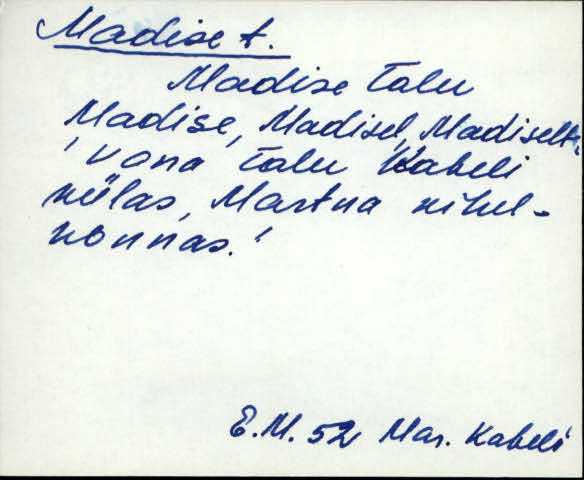 Madise t.
Madise talu
Madise, Madisel, Madiselt.
'Vana talu Kabeli
külas, Martna kihel-
konnas.'
E.M. 52 Mar. Kabeli